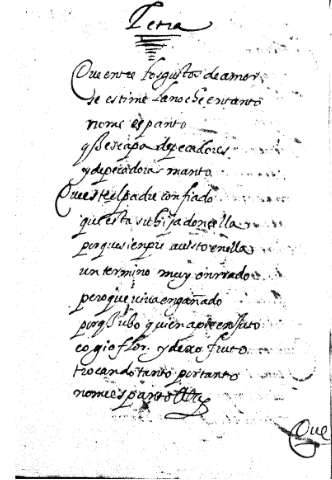 Letra
Que entre los gustos de amor
se estime la noche en tanto
no me espanto
q es capa de pecadores
y de pecadoras manto
Que este el padre confiado
que esta su hija donzella
porque sienpre a visto en ella
un termino muy onrrado
pero que viva engañado
porq ubo quien a pie enjuto
cogio flor y dexo fruto
trocando tanto por tanto
no me espanto &a
Que